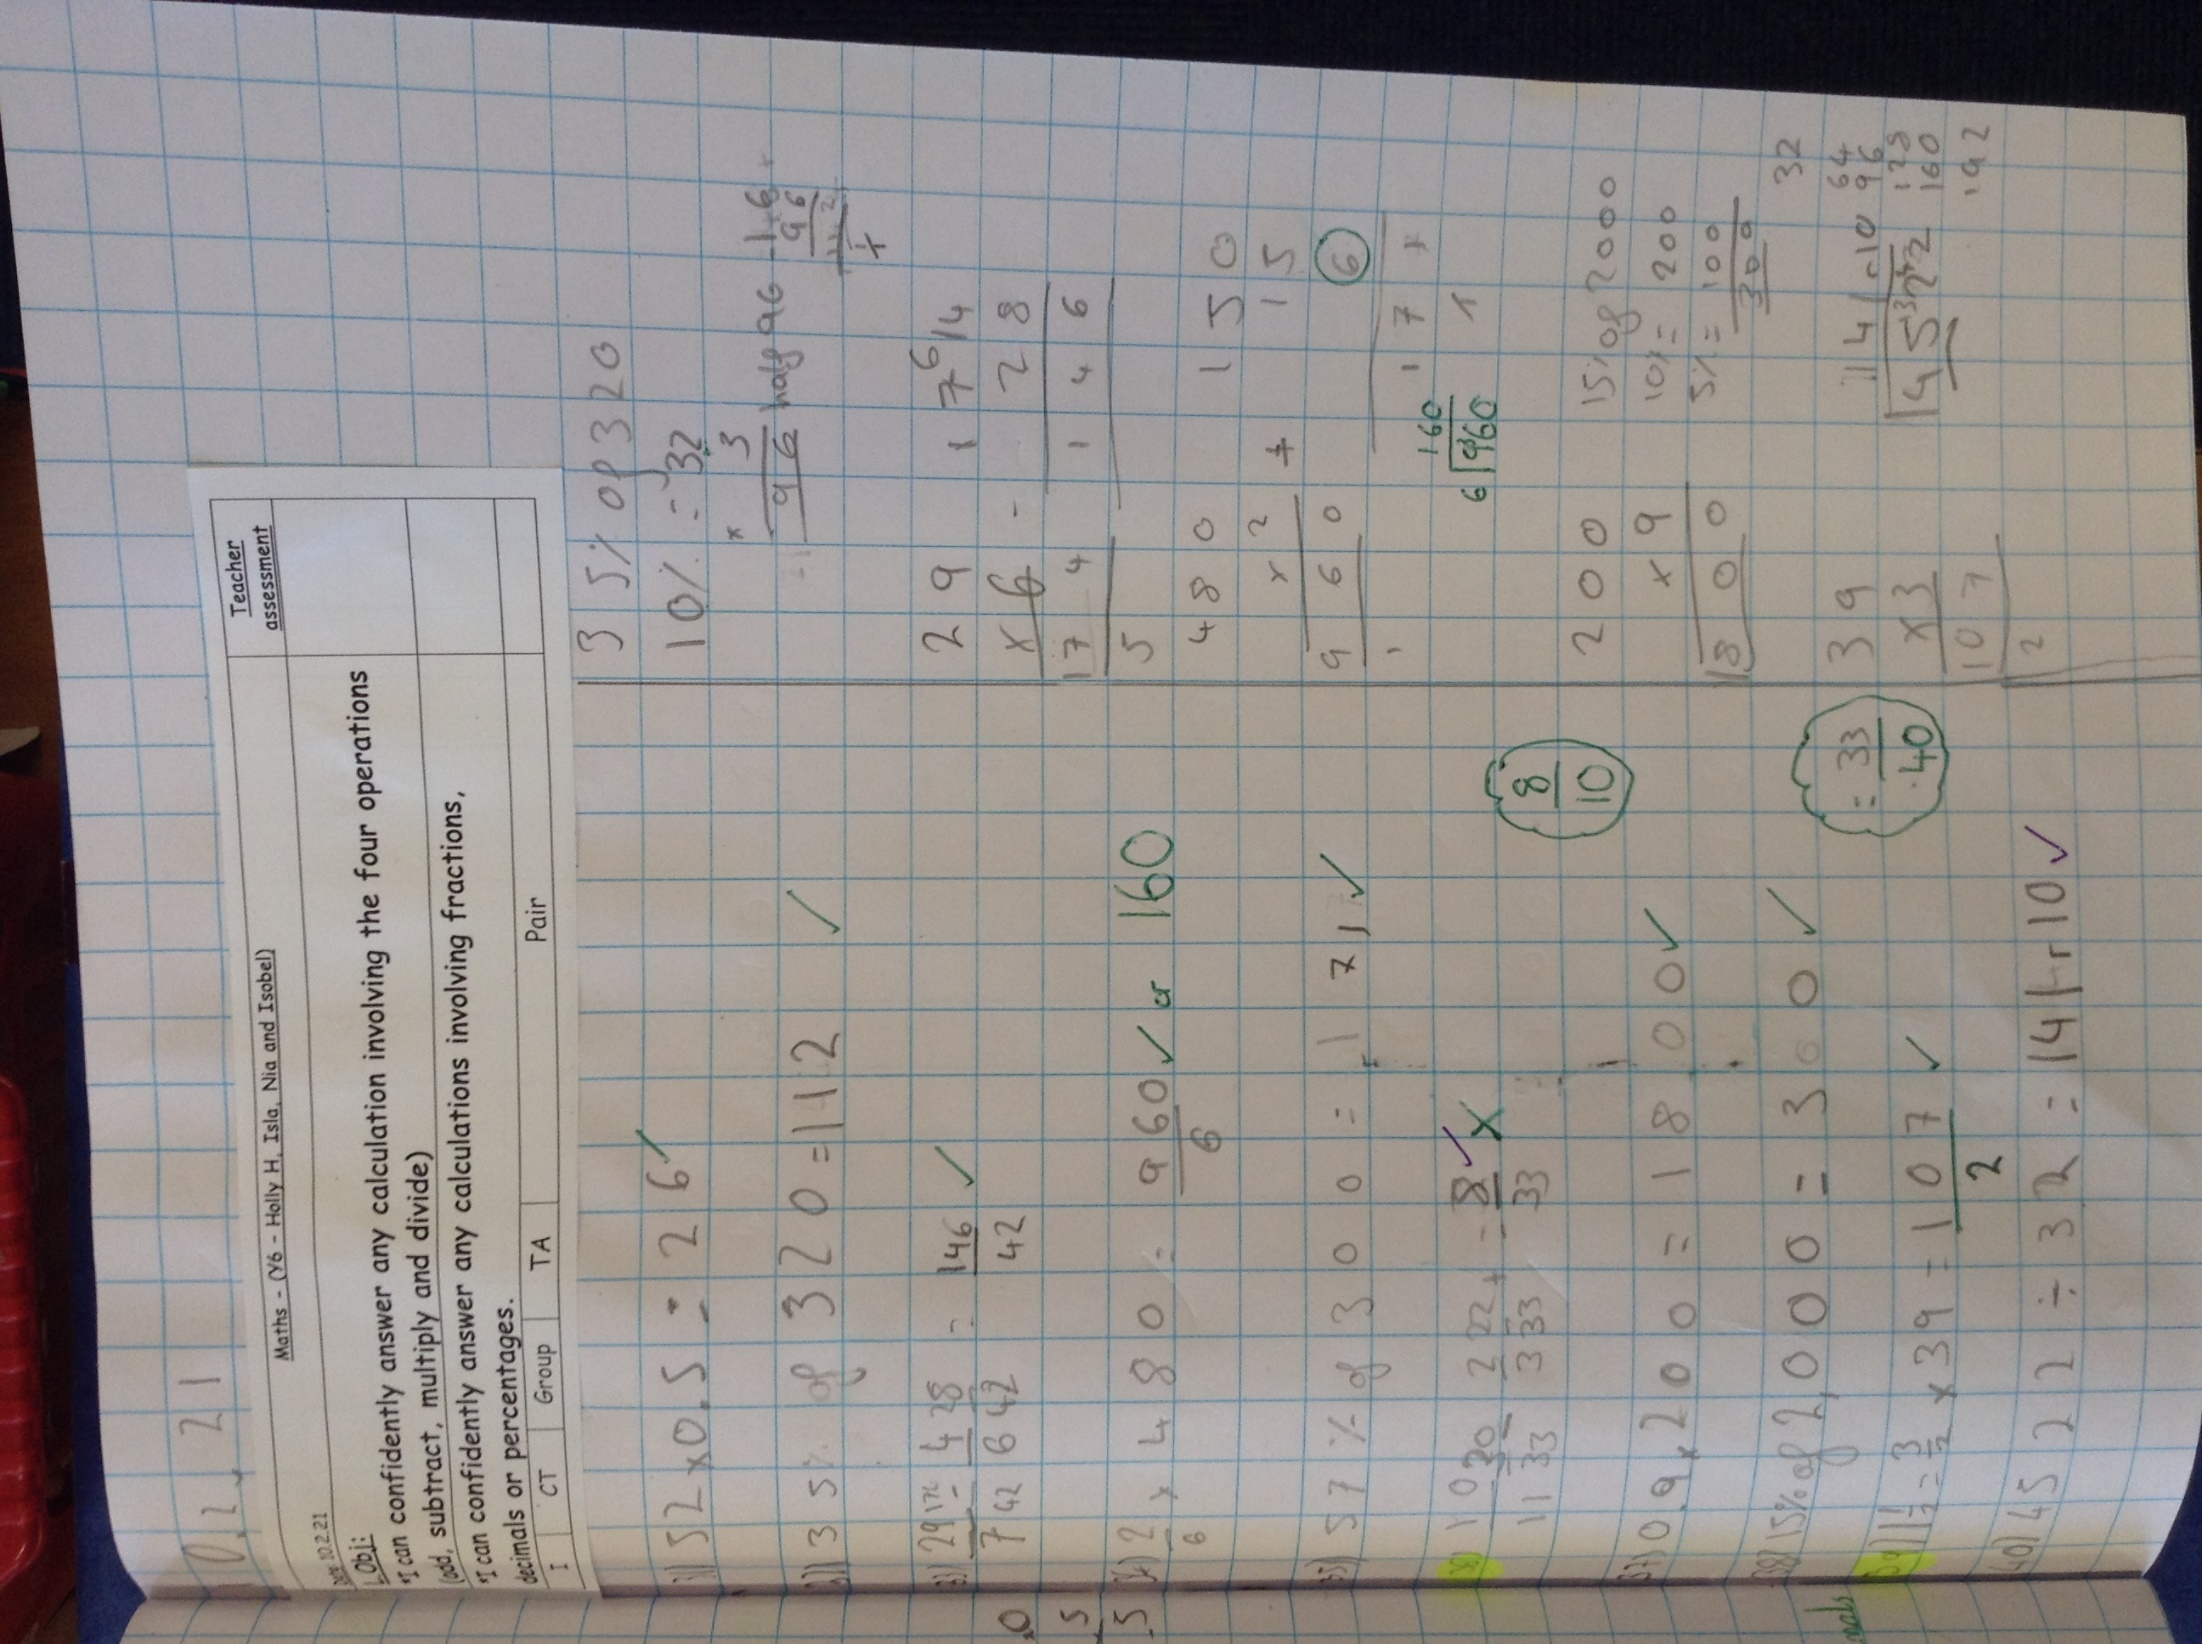 10.2.21
Maths - (Y6 - Holly H, Isla, Nia and Isobel)
Teacher assessment
Date: 10.2.21
L.Obj:
*I can confidently answer any calculation involving the four operations
(add, subtract, multiply and divide)
*I can confidently answer any calculations involving fractions,
decimals or percentages.
I CT Group TA Pair
31) 52 x 0.5 = 26 ✓
35% of 320 = 112 ✓
29/7 174/42 - 4/6 28/42 = 146/42 ✓
34) 2/6 x 480 = 960/6 ✓ or 160
35) 57% of 300 = 171 ✓
10/11 30/33 - 2/3 22/33 = 8/33 ✓ x
8/10
37) 0.9 x 200 = 1800 ✓
38) 15% of 2,000 = 300 ✓
39) 1 1/2 = 3/2 x 39 = 107/2 ✓
= 33/40
40) 4522 ÷ 32 = 141 r 10 ✓
35% of 320
10% = 32
x 3
96 half 96
29
x 6
174
5
174
- 28
146
480
x 2
960
1
150
+ 15
6
171
1
160
6 960
200
x 9
1800
15% of 2000
10% = 200
5% = 100
300
39
x 3
107
2
141 r 10
4522
32
64
96
128
160
192